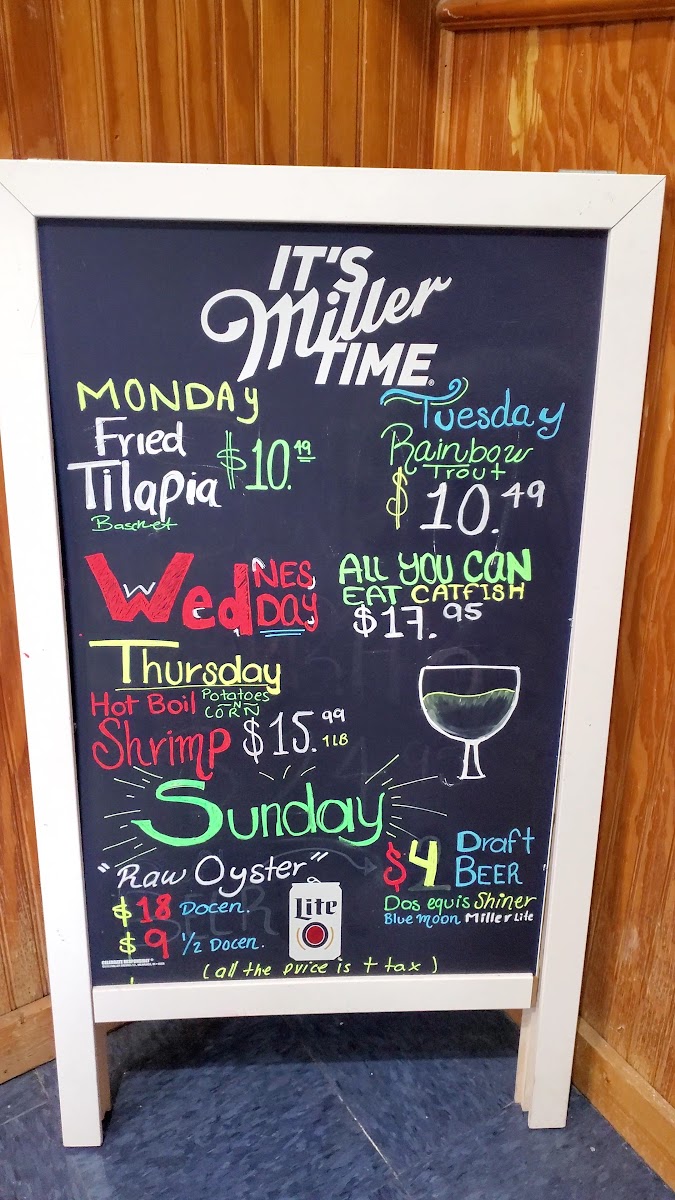 IT'S
Miller
TIME
MONDAY
Fried
Tilapia
Basket
$10.49
Tuesday
Rainbow
Trout
$10.49
WedNESDAY
ALL YOU CAN
EAT CATFISH
$17.95
Thursday
Hot Boil Potatoes
N
CORN
Shrimp $15.99
1LB
Sunday
"Raw Oyster"
$18 Docen.
$9 1/2 Docen.
Lite
$4 Draft
BEER
Dos equis Shiner
Blue moon Miller Lite
(all the price is + tax)